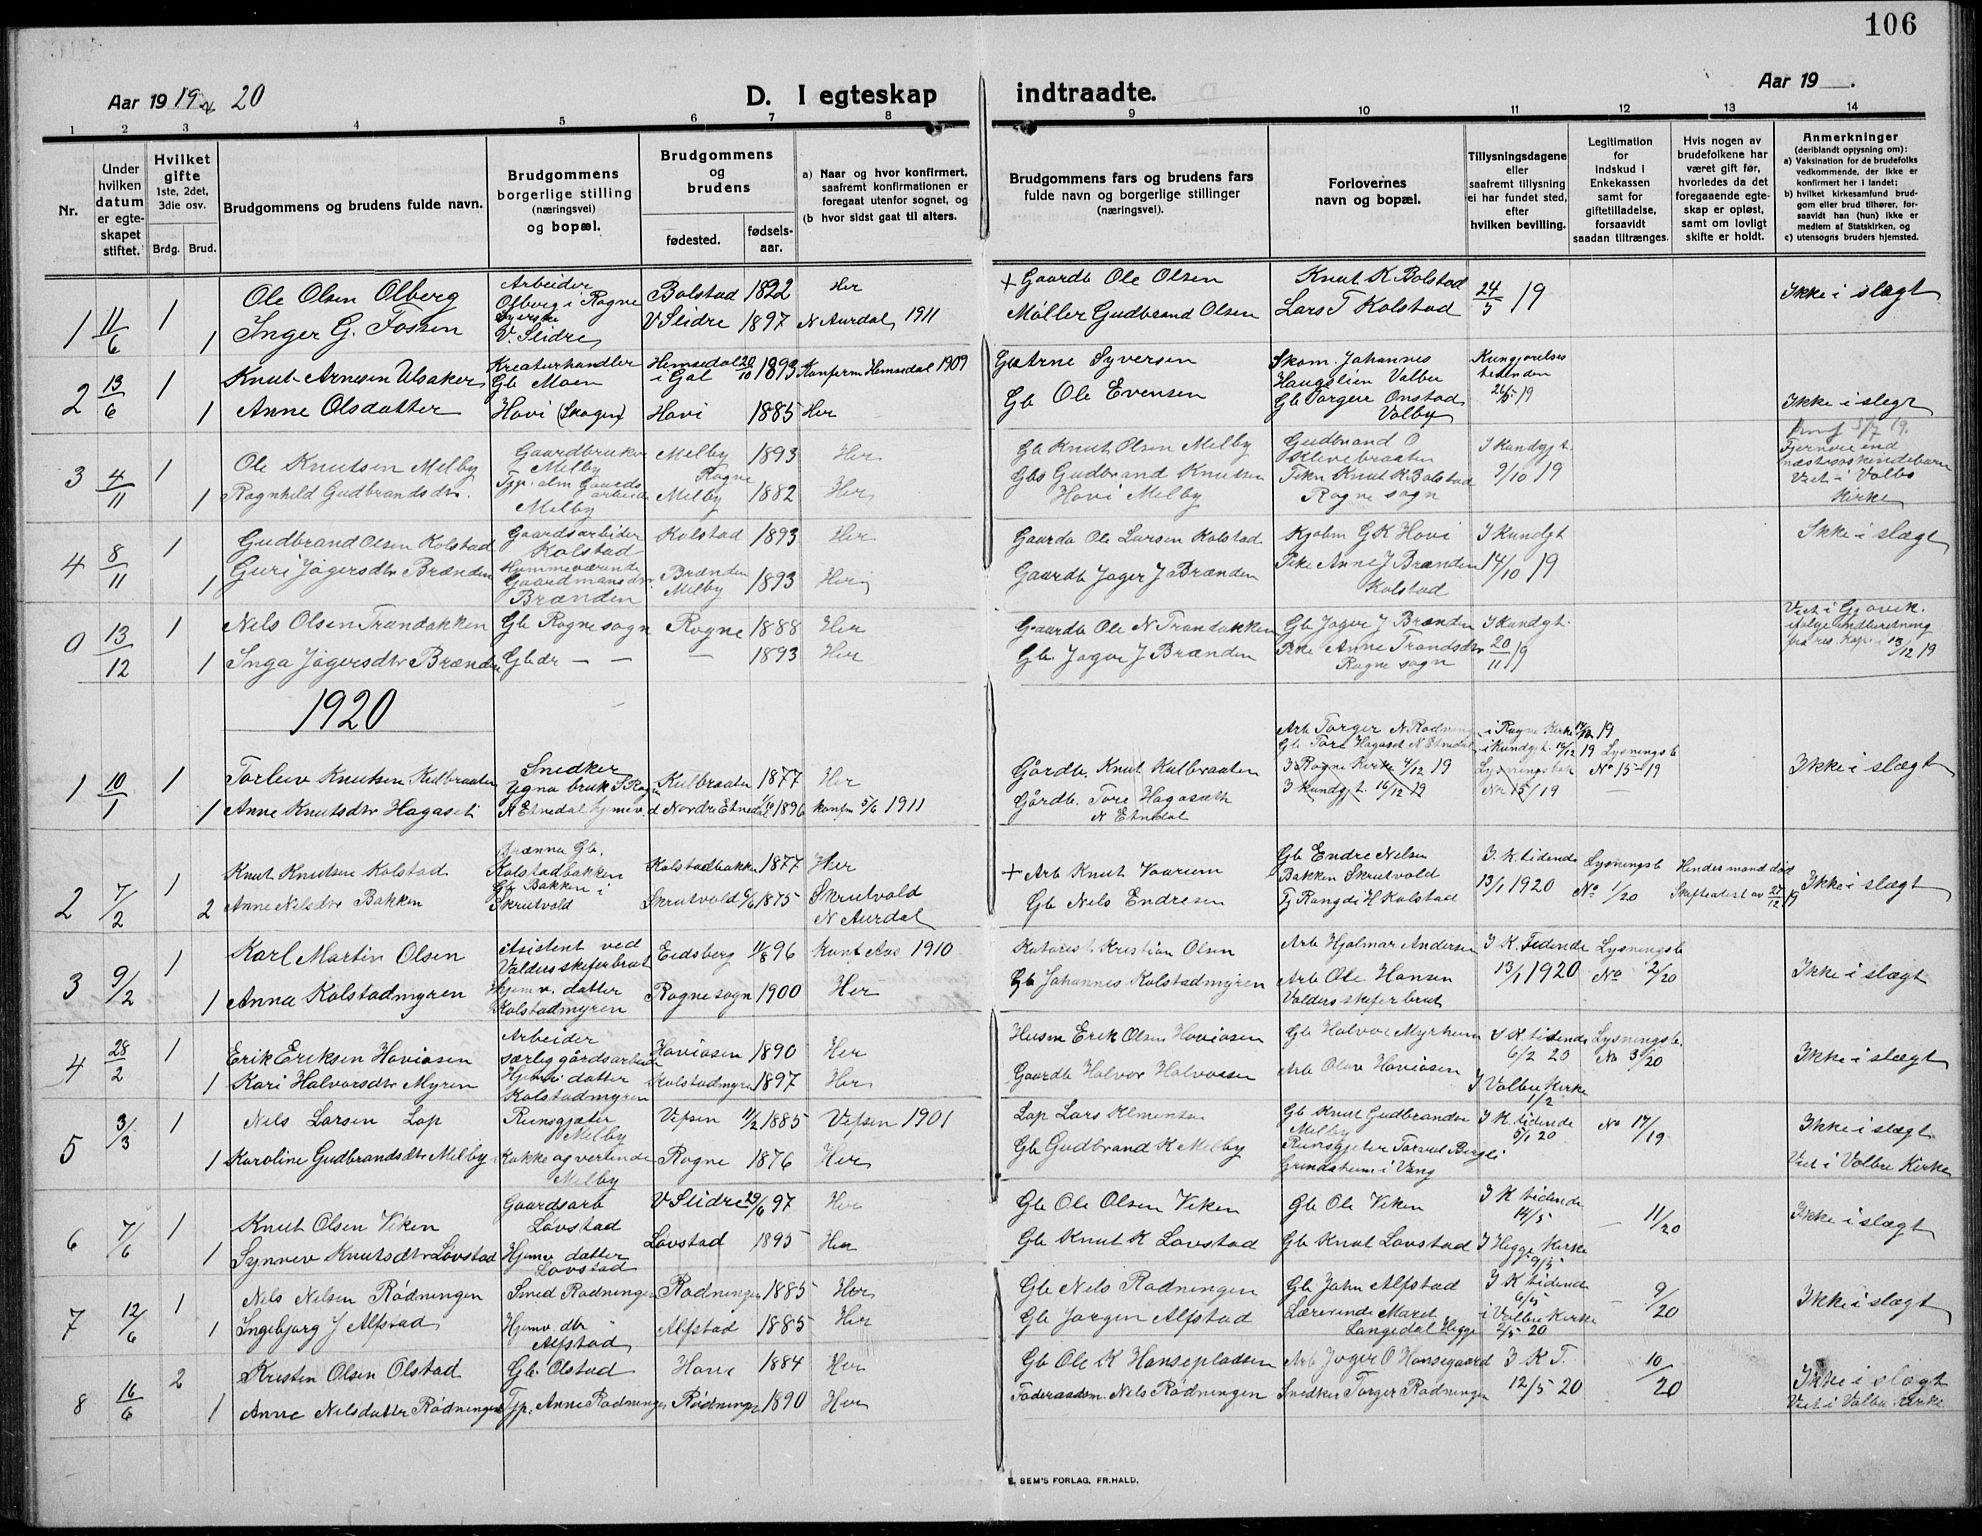 106
Aar 1919 & 20
D. I egteskap
indtraadte.
Aar 19 .
1 2 3 4 5 6 7 8 9 10 11 12 13 14
Nr.
Under hvilken datum er egteskapet stiftet.
Hvilket gifte 1ste, 2det, 3die osv.
Brdg. Brud.
Brudgommens og brudens fulde navn.
Brudgommens borgerlige stilling (næringsvei) og bopæl.
Brudgommens og brudens
fødested.
fødsels-aar.
a) Naar og hvor konfirmert, saafremt konfirmationen er foregaat utenfor sognet, og
(b hvor sidst gaat til alters.
Brudgommens fars og brudens fars fulde navn og borgerlige stillinger (næringsvei).
Forlovernes navn og bopæl.
Tillysningsdagene eller saafremt tillysning ei har fundet sted, efter hvilken bevilling.
Legitimation for indskud i Enkekassen samt for giftetilladelse, forsaavidt saadan tiltrænges.
Hvis nogen av brudefolkene har været gift før, hvorledes da det foregaaende egteskap er opløst, samt om lovligt skifte er holdt.
Anmerkninger (deriblandt oplysning om):
a) Vaksination for de brudefolks vedkommende, der ikke er konfirmert her i landet;
b) hvilket kirkesamfund brudgom eller brud tilhører, forsaavidt han (hun) ikke er medlem af Statskirken, og
c) utensogns bruders hjemsted.
1 11/6 1 Ole Olsen Olberg Arbeider Olberg i Rogne Bolstad 1822 Her + Gaardb Ole Olsen Knut K Bolstad 24/5 19 Ikke i slægt
1 Inger G. Fossen Syerske V. Slidre V Slidre 1897 N Aurdal 1911 Møller Gudbrand Olsen Lars T Kolstad
2 13/6 1 Knut Arnesen Ulsaker Kreaturhandler Gb Moen Hemsedal i Gol 20/10 1893 Konferm Hemsedal 1909 Gb Arne Syversen Skom. Johannes Haugslien Volbu Kungjørelses tidenden
1 Anne Olsdatter Hovi (Skogen) Hovi 1885 Her Gb Ole Evensen Gb Torgeir Onstad Volbu 24/5 19 Ikke i slegt
3 4/11 1 Ole Knutsen Melby Gaardbruker Melby Melby Rogne 1893 Her Gb Knut Olsen Melby Gudbrand O Klevebraaten I Kundgjt. 9/10 19
1 Ragnhild Gudbrandsdtr. Tjp. alm Gaards arbeide Melby Melby 1882 Her Gbs Gudbrand Knutsen Hovi Melby Tekn Knut K Bolstad Rogne sogn Fjernere end næstsøskendebarn Viet i Volbo Kirke
4 8/11 1 Gudbrand Olsen Kolstad Gaardsarbeider Kolstad Kolstad 1893 Her Gaardb Ole Larsen Kolstad Kjøbm G K Hovi I Kundgt 14/10 19 Ikke i slægt
1 Guri Jøgersdtr Brænden Hjemmeværende Gaardmansdtr Brænden Brænden Melby 1893 Her Gaardb Jøger J Brænden Pike Anne J Brænden Kolstad
0 13/12 1 Nils Olsen Trandokken Gb Rogne sogn Rogne 1888 Her Gaardb Ole N Trandokken Gb Jøger J Brænden I Kundgt. 20/11 19 Viet i Gjøvik. ifølge indberetning fra res. kap. i 13/12 19
1 Inga Jøgersdtr Brænden Gbdr — — — 1893 Her Gb. Jøger J Brænden Pike Anne Trondsdtr Rogne sogn
1920
1 10/1 1 Torleiv Knutsen Kulbraaten Snedker Kulbraaten 1877 Her Gårdb. Knut Kulbraaten Arb Torger N Rødningen Gb Tore Hagaset N Etnedal i Rogne Kirke 14/12 19 i Kundgt. 16/12 19 Lysningsb No 15-19 Ikke i slægt
I Rogne Kirke 4/12 19 Lysningsbok
I Kundgt. 16/12 19 No 15/19
1 Anne Knutsdtr Hagaset N Etnedal hjemv.d Nordre Etnedal 1896 konfm 5/6 1911 Gårdb. Tore Hagaseth N Etnedal
2 7/2 1 Knut Knutsen Kolstad Brænna Gb. Kolstadbakken Kolstadbakken 1877 Her + Arb Knut Vaarum Gb Endre Nilsen Bakken Skrutvold I. K. tidende 13/1 1920 Lysningsb No 1/20 Hendes mand død Skifteatest av 27/12 19 Ikke i slægt
2 Anne Nilsdtr Bakken Gb Bakken i Skrutvold Skrutvold 6/6 1875 Skrutvold N Aurdal Gb Nils Endresen Tj Rangdi H Kolstad
3 9/2 1 Karl Martin Olsen Assistent ved Valders skiferbrut Eidsberg 11/8 96 Konf Aas 1910 Kristian Olsen Arb Hjalmar Andersen I K. Tidende 13/1 1920 Lysningsb No 2/20 Ikke i slægt
1 Anna Kolstadmyren Hjemv. datter Kolstadmyren Rogne sogn 1900 Her Gb Johannes Kolstadmyren Arb Ole Hansen Valders skiferbrut
4 28/2 1 Erik Eriksen Hoviosen Arbeider særlig gårdsarbeide Hoviosen 1890 Her Husm Erik Olsen Hoviosen Gb Halvor Myrheim I K. tidende 6/2 20 Lysningsb. No 3/20 Ikke i slægt
1 Kari Halvorsdtr Myren Hjemv. datter Kolstadmyren Kolstadmyre 1897 Her Gaardb Halvor Halvorsen Arb Olav Hoviosen I Volbu Kirke 1/2
5 3/3 1 Nils Larsen Lap Rensgjæter Melby Vefsen 11/2 1885 Vefsen 1901 Lap Lars Klementsen Gb Knut Gudbrandsen Melby I K. tidende 5/1 20 No 17/19 Ikke i slægt
1 Karoline Gudbrandsdtr Melby Kokke og vertinde Melby Rogne 1876 Her Gb Gudbrand K Melby Rensgjeter Grindaheim i Vang Viet i Volbu Kirke
6 7/6 1 Knut Olsen Viken Gaardsarb Løvstad V Slidre 29/6 97 Her Gb Ole Olsen Viken Gb Ole Viken I K tidende 14/5 — 11/20 Ikke i slægt
1 Synnev Knutsdtr Løvstad Hjemv datter Løvstad Løvstad 1895 Her Gb Knut K Løvstad Gb Knut Løvstad I Hegge Kirke 9/5
7 12/6 1 Nils Nilsen Rødningen Smed Rødningen Rødningen 1885 Her Gb Nils Rødningen Gb John Alfstad I K tidende 6/5 — 9/20 Ikke i slægt
1 Ingebjørg J Alfstad Hjemv dtr Alfstad Alfstad 1885 Her Gb Jørgen Alfstad Lærerinde Marit Langedal Hegge i Volbu Kirke 2/5 20
8 16/6 2 Kristen Olsen Olstad Gb. Olstad Hovi 1884 Her Gb Ole K Hansepladsen Arb Jøger O Hansegaard I K T. 12/5 20 10/20 Ikke i slægt
1 Anne Nilsdatter Rødningen Tjp. Anne Rødningen Rødningen 1890 Her Føderaadsm. Nils Rødningen Snedker Torger Rødningen Viet i Volbu Kirke
E. SEM'S FORLAG, FR.HALD.